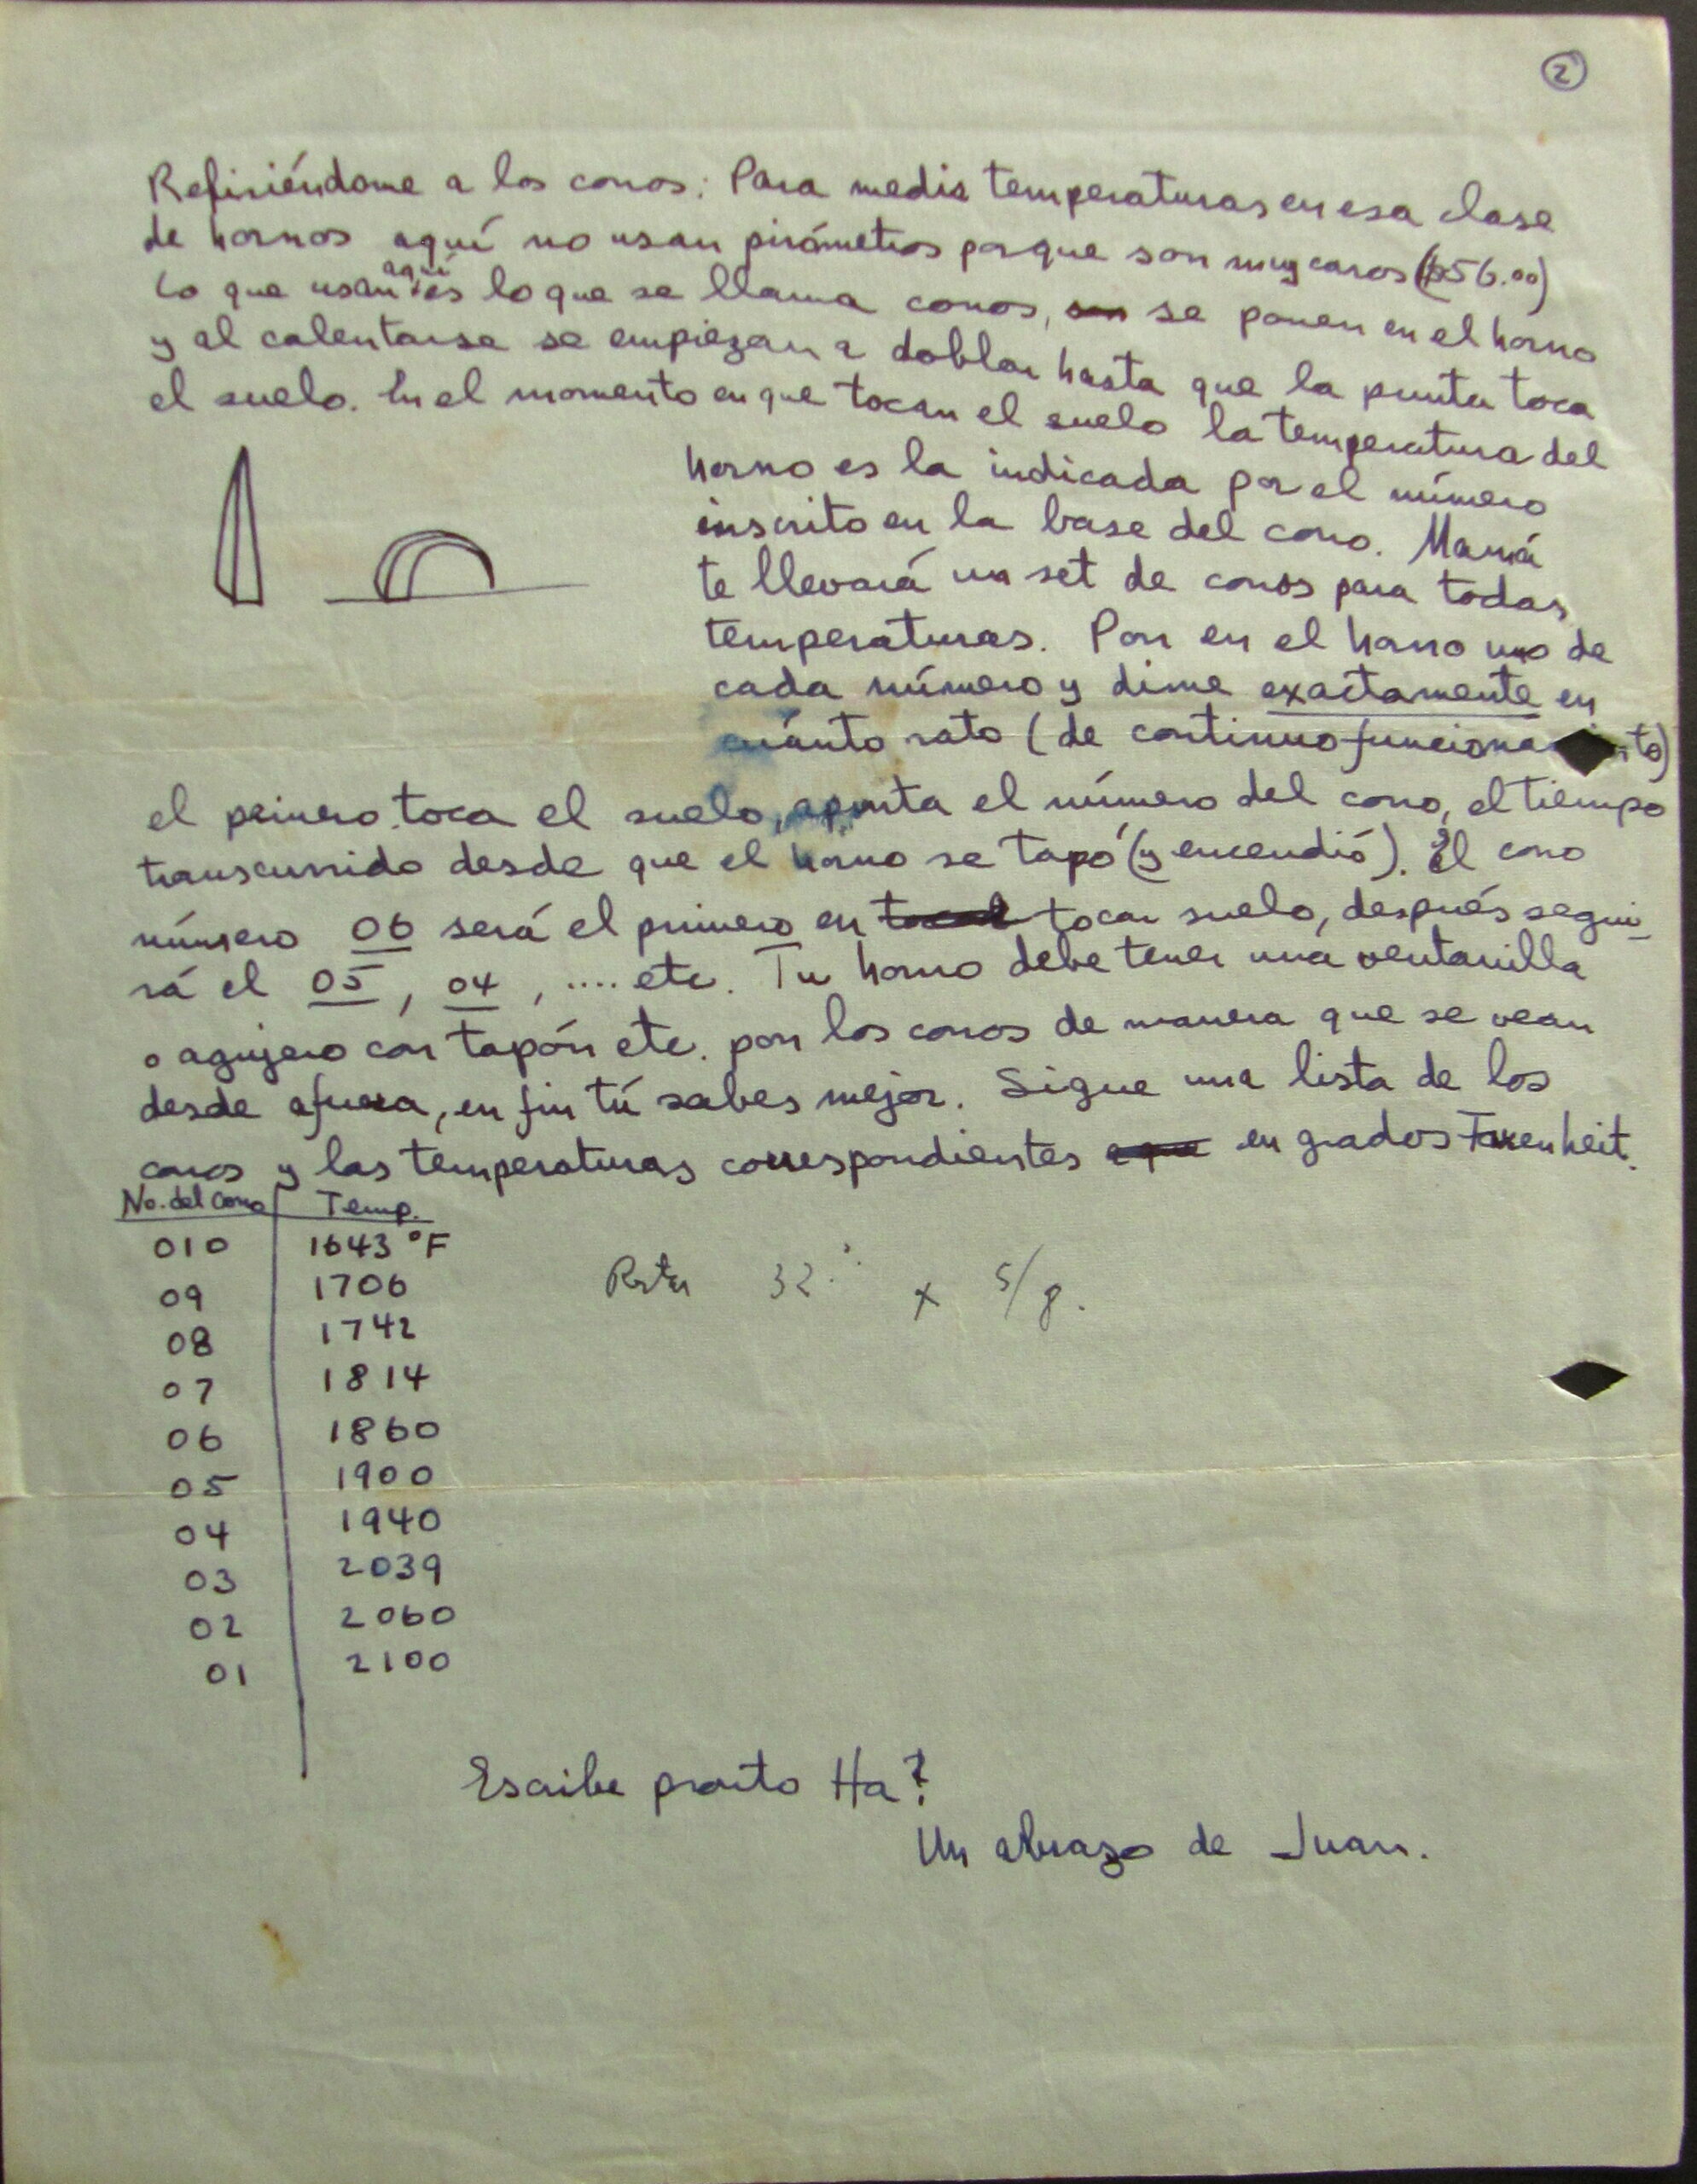 2
Refiriéndome a los conos: Para medir temperaturas en esa clase
de hornos aquí no usan pirómetros porque son muy caros ($56.00)
Lo que usan aquí es lo que se llama conos, se ponen en el horno
y al calentarse se empiezan a doblar hasta que la punta toca
el suelo. En el momento en que tocan el suelo la temperatura del
horno es la indicada por el número
inscrito en la base del cono. Mamá
te llevará un set de conos para todas
temperaturas. Pon en el horno uno de
cada número y dime exactamente en
cuánto rato (de continuo funciona nto)
el primero toca el suelo, apunta el número del cono, el tiempo
transcurrido desde que el horno se tapó (y encendió). El cono
número 06 será el primero en tocar suelo, después segui-
rá el 05, 04, .... etc. Tu horno debe tener una ventanilla
o agujero con tapón etc. pon los conos de manera que se vean
desde afuera, en fin tú sabes mejor. Sigue una lista de los
conos y las temperaturas correspondientes en grados Farenheit.
No. del Cono Temp.
010 1643 °F
09 1706
08 1742
07 1814
06 1860
05 1900
04 1940
03 2039
02 2060
01 2100
32 x 5/9.
Escribe pronto Ha?
Un abrazo de Juan.